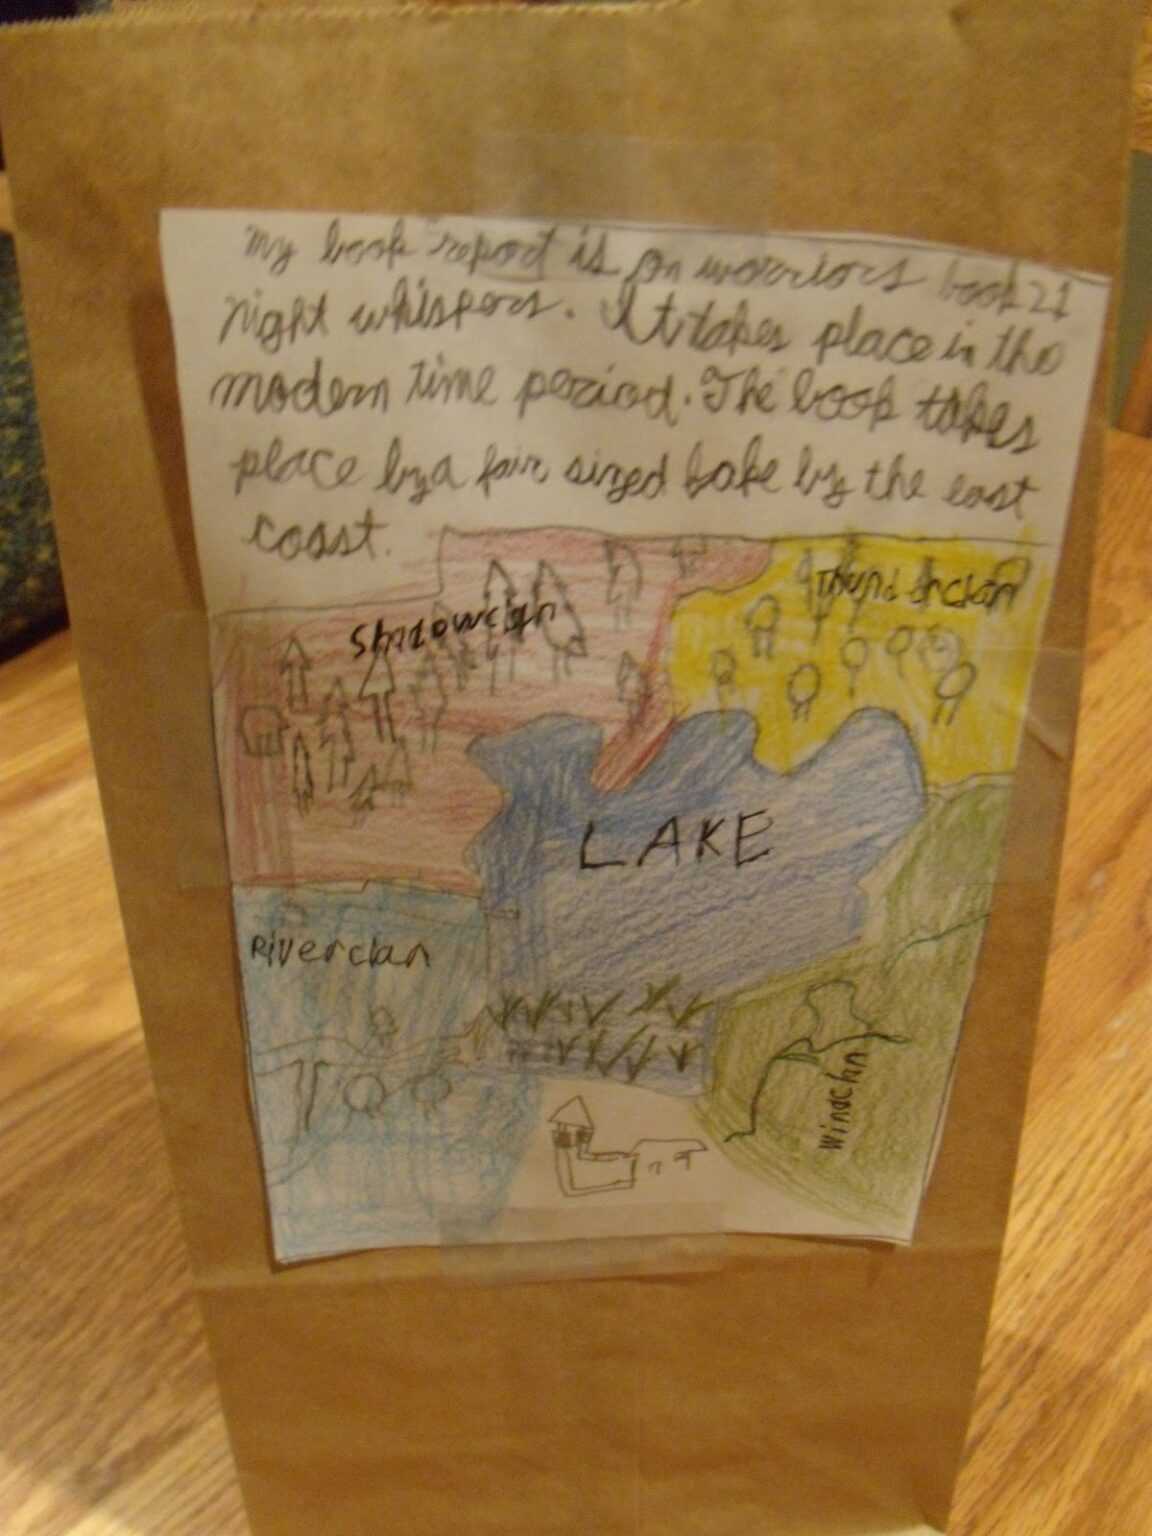 My book report is on warriors book 21
night whispers. It takes place in the
modern time period. The book takes
place by a fair sized lake by the east
coast.
Shadowclan
Thunderclan
LAKE
Riverclan
Windclan